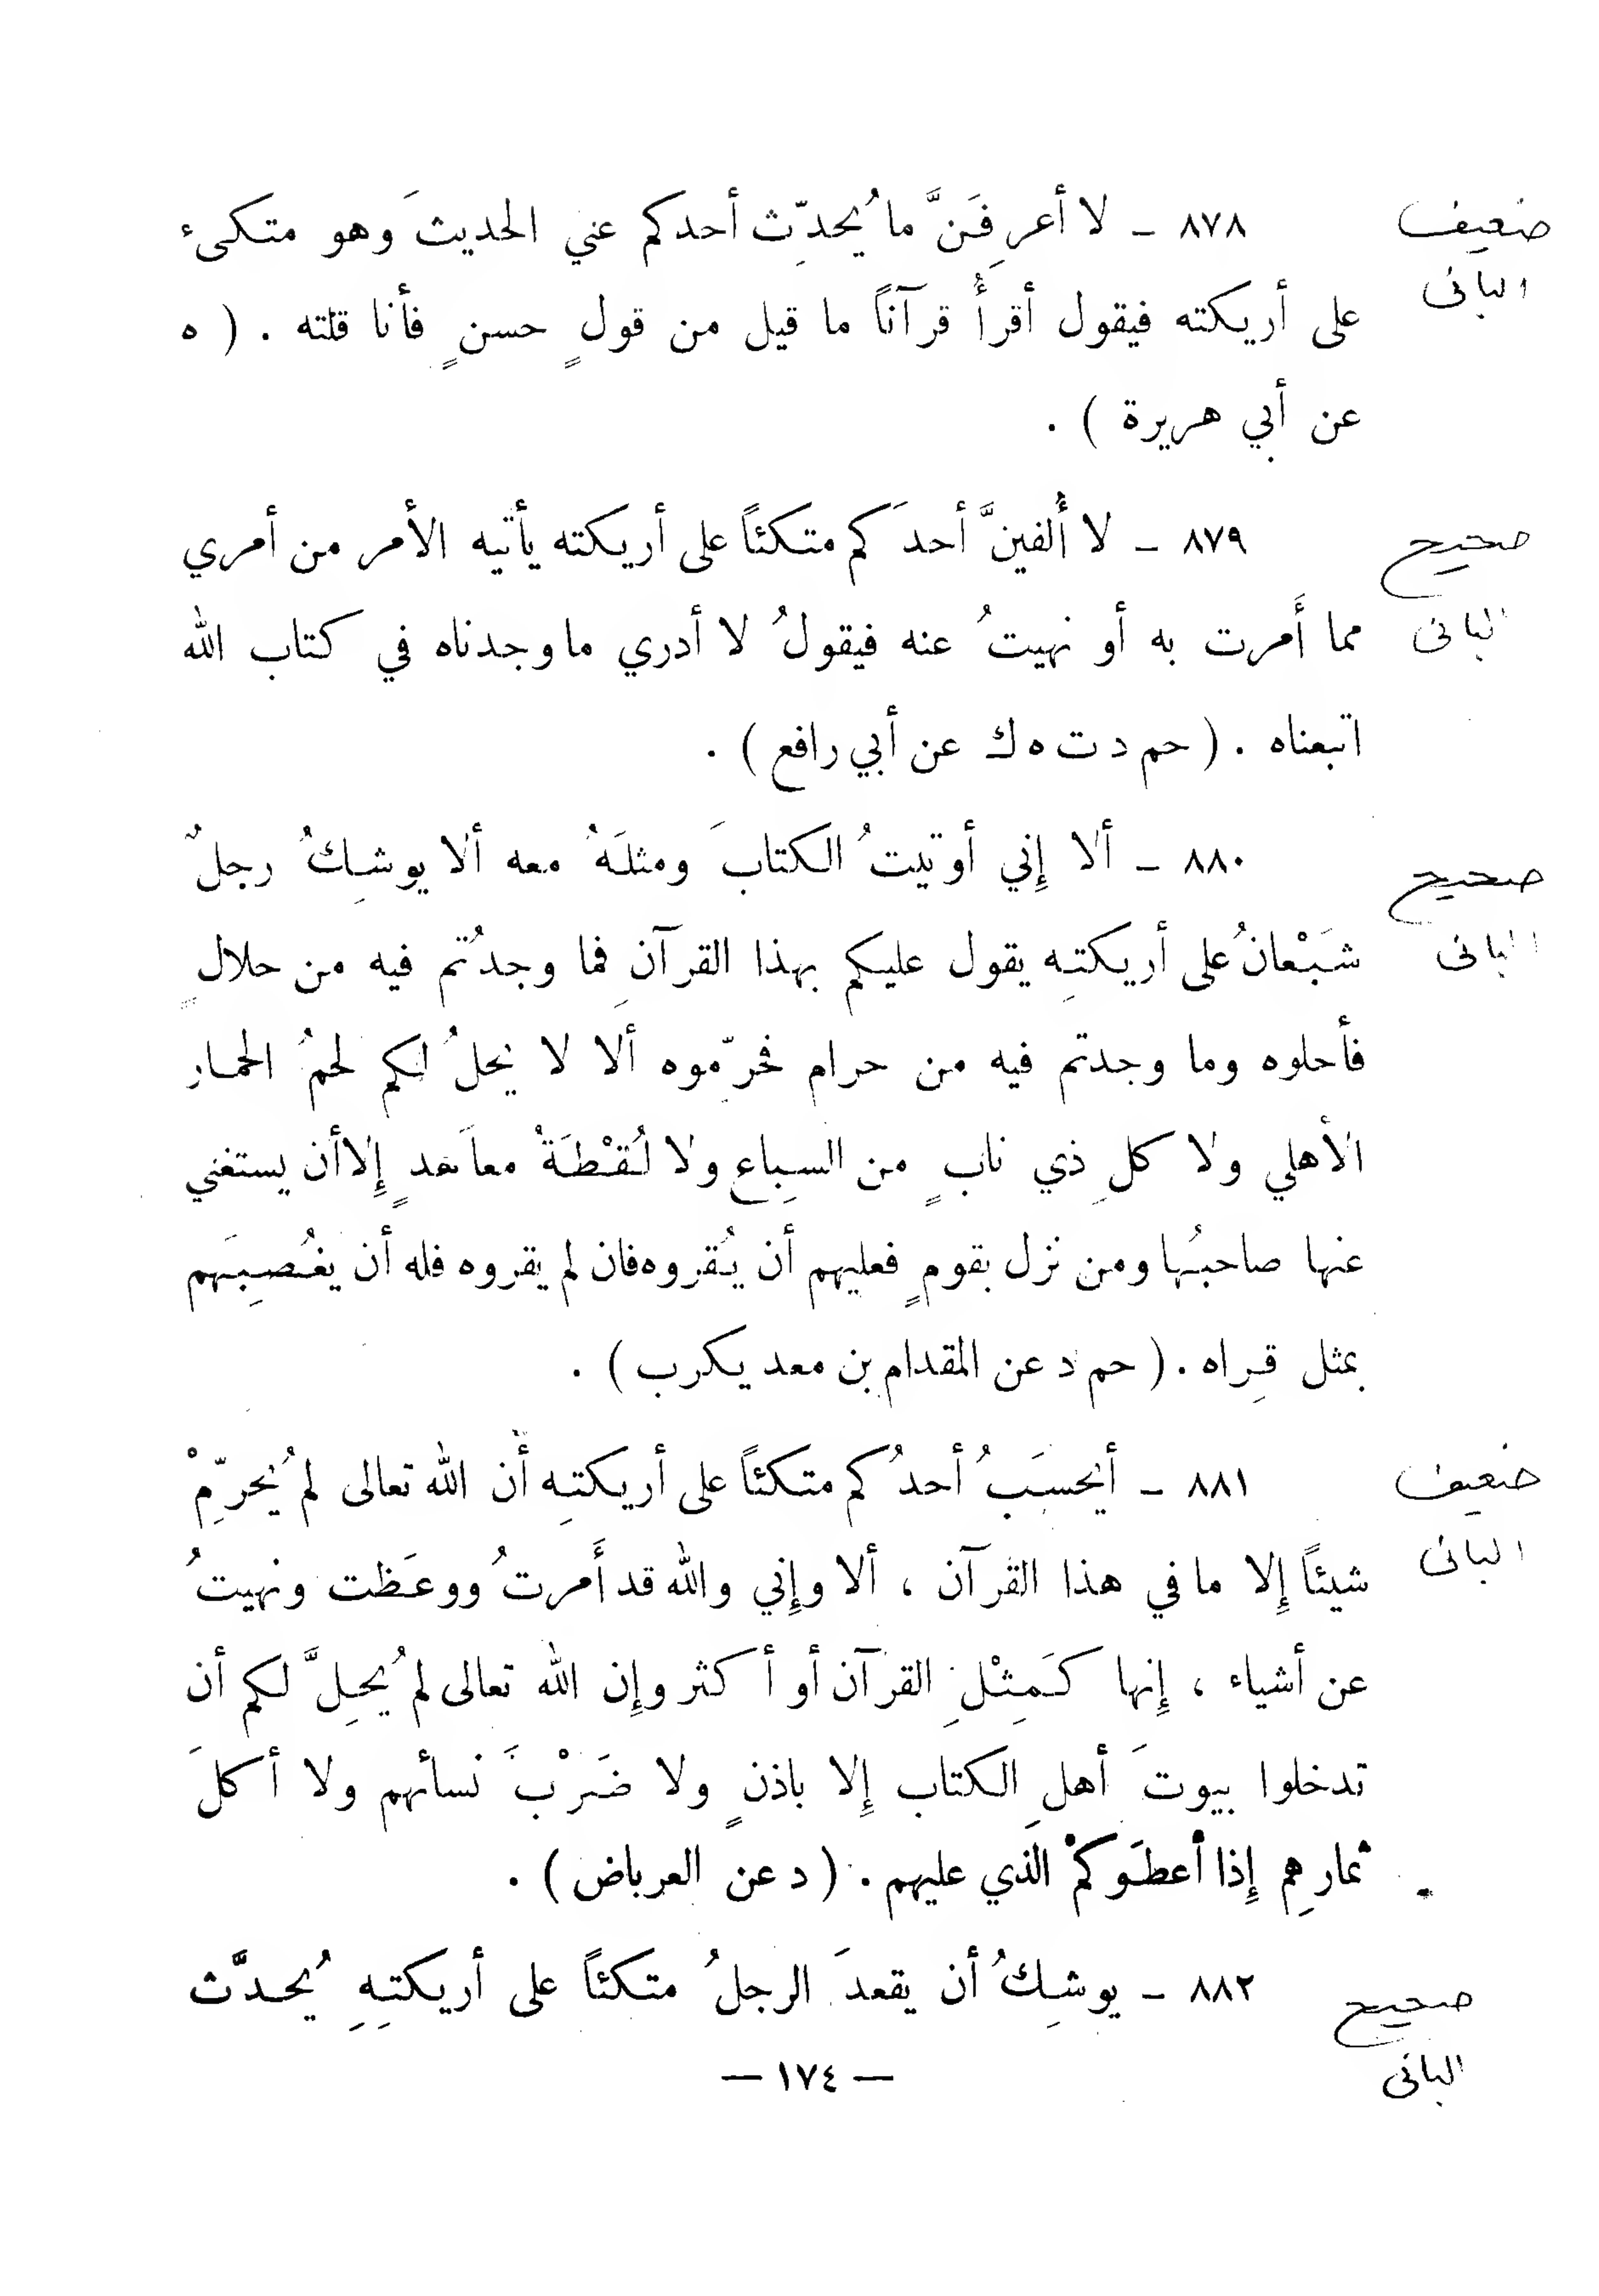 ضعيف
الباني
٨٧٨ - لا أعرِفَنَّ ما يُحدِّث أحدكم عني الحديثَ وهو متكىء
على أريكته فيقول أقرأُ قرآناً ما قيل من قولٍ حسنٍ فأنا قلته . ( ه
عن أبي هريرة ) .
صحيح
الباني
٨٧٩ - لا أُلفينَّ أحدَكم متكئاً على أريكته يأتيه الأمر من أمري
مما أَمرت به أو نهيتُ عنه فيقولُ لا أدري ما وجدناه في كتاب الله
اتبعناه . ( حم د ت ه ك عن أبي رافع ) .
صحيح
الباني
٨٨٠ - ألا إِني أوتيتُ الكتابَ ومثلَهُ معه ألا يوشِكُ رجلٌ
شَبْعانُ على أريكتِه يقول عليكم بهذا القرآنِ فما وجدُتم فيه من حلالٍ
فأحلوه وما وجدتم فيه من حرام فحرّموه ألا لا يحلُ لكم لحمُ الحمار
الأهلي ولا كلِ ذي نابٍ من السِباع ولا لُقْطَةُ معاهَدٍ إِلا أن يستغني
عنها صاحبُها ومن نزل بقومٍ فعليهم أن يُقروه فان لم يقروه فله أن يغُصِبَهم
بمثل قِراه . ( حم د عن المقدام بن معد يكرب ) .
ضعيف
الباني
٨٨١ - أيحسَبُ أحدُكم متكئاً على أريكتِه أن الله تعالى لم يُحرِّمْ
شيئاً إِلا ما في هذا القرآن ، ألا وإِني والله قد أَمرتُ ووعَظت ونهيتُ
عن أشياء ، إِنها كَمِثْلِ القرآن أو أكثر وإِن الله تعالى لم يُحِلَّ لكم أن
تدخلوا بيوتَ أهلِ الكتاب إِلا باذنٍ ولا ضَرْبَ نسائهم ولا أكلَ
ثمارِهم إِذا أعطَوكمْ الذي عليهم . ( د عن العرباض ) .
صحيح
الباني
٨٨٢ - يوشِكُ أن يقعدَ الرجلُ متكئاً على أريكتِهِ يُحدَّث
— ١٧٤ —